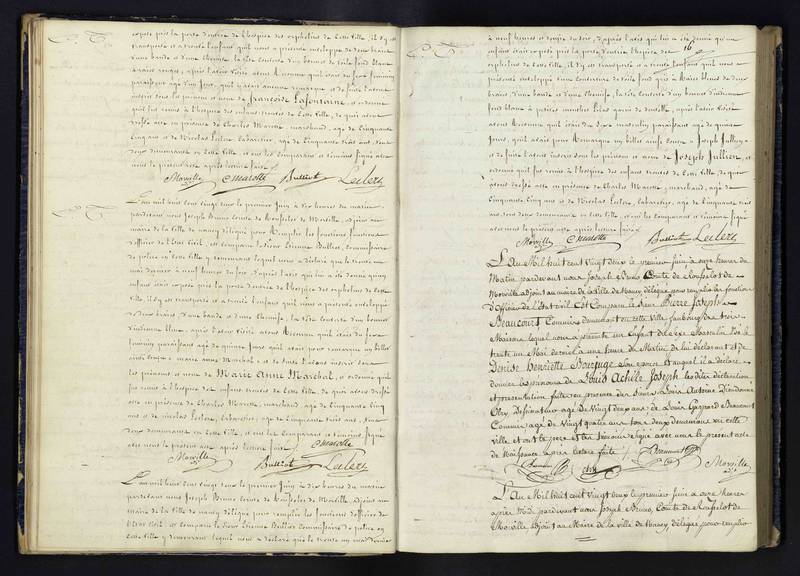 exposé près la porte d'entrée de l'hospice des orphelins de cette ville, il s'y est
transporté et a trouvé l'enfant qu'il nous a présenté enveloppé de deux
d'une bande et d'une chemise, la tête couverte d'un bonnet de toile fond blanc
à raies rouges, après l'avoir visité avons reconnu qu'il était du sexe féminin
paraissant âgé d'un jour, qu'il n'avait aucune remarque et de suite l'avons
inscrit sous les prénom et nom de françoise Lafontaine, et ordonné
qu'il fut remis à l'hospice des enfans trouvés de cette ville, de quoi avons
dressé acte en présence de Charles Marotte, marchand, âgé de Cinquante
Cinq ans et de Nicolas Leclerc, Cabaretier, âgé de Cinquante trois ans, tous
deux demeurant en cette ville et ont les comparant et témoins signé avec
nous le présent acte après lecture faite
Morville C Marotte Bulliot Leclerc
L'an mil huit cent vingt deux le premier Juin à dix heures du matin
pardevant nous Joseph Bruno Comte de Rousselot de Morville, adjoint au
maire de la ville de nancy délégué pour remplir les fonctions
d'officier de l'état Civil, est comparu le Sieur Etienne Bulliot, Commissaire
de police en cette ville y demeurant lequel nous a déclaré que le trente un
mai dernier à neuf heures du soir d'après l'avis qui lui a été donné qu'un
enfant était exposé près la porte d'entrée de l'hospice des orphelins de cette
ville, il s'y est transporté et a trouvé l'enfant qu'il nous a présenté enveloppé
d'une bande et d'une chemise, la tête couverte d'un bonnet
d'indienne blanc, après l'avoir visité avons reconnu qu'il était du sexe
féminin paraissant âgé de quinze Jours qu'il avait pour remarque un billet
ainsi conçu marie anne Marchal et de suite l'avons inscrit sous
les prénoms et nom de Marie Anne Marchal, et ordonné qu'il
fut remis à l'hospice des enfans trouvés de cette ville, de quoi avons dressé
acte en présence de Charles Marotte, marchand, âgé de Cinquante Cinq
ans et de nicolas Leclerc, Cabaretier, âgé de Cinquante trois ans, tous
deux demeurant en cette ville, et ont les Comparant et témoins signé
avec nous le présent acte après lecture faite
C Marotte
Morville Bulliot Leclerc
L'an mil huit cent vingt deux le premier Juin à dix heures du matin
pardevant nous Joseph Bruno comte de Rousselot de Morville adjoint au
maire de la ville de nancy délégué pour remplir les fonctions d'officier de
l'état Civil est comparu le Sieur Etienne Bulliot Commissaire de police en
cette ville y demeurant lequel nous a déclaré que le trente un mai dernier
à neuf heures et demie du soir, d'après l'avis qui lui a été donné qu'un
enfant était exposé près la porte d'entrée l'hospice des
16
orphelins de cette ville, il s'y est transporté et a trouvé l'enfant qu'il nous a
présenté enveloppé d'une couverture de toile fond gris à raies bleues de deux
d'une bande et d'une chemise, la tête couverte d'un bonnet d'indienne
fond blanc à petites mouches lilas garni de dentelle, après l'avoir visité
avons reconnu qu'il était du sexe masculin paraissant âgé de quinze
Jours, qu'il avait pour remarque un billet ainsi conçu Joseph Jullien
et de suite l'avons inscrit sous les prénom et nom de Joseph Jullien, et
ordonné qu'il fut remis à l'hospice des enfans trouvés de cette ville, de quoi
avons dressé acte en présence de Charles Marotte, marchand, âgé de
Cinquante Cinq ans et de Nicolas Leclerc, Cabaretier, âgé de Cinquante trois
ans, tous deux demeurant en cette ville, et ont les comparant et témoins signé
avec nous le présent acte après lecture faite
Morville C Marotte Bulliot Leclerc
L'an Mil huit cent vingt deux le premier Juin à onze heures du
Matin pardevant nous Joseph Bruno Comte de Rousselot de
Morville adjoint au maire de la ville de Nancy délégué pour remplir les fonctions
d'officier de l'état civil Est Comparu le sieur Pierre Joseph
Beaucourt Commis demeurant en cette ville faubourg des trois
Maisons lequel nous a présenté un Enfant du sexe Masculin Né le
trente un Mai dernier à une heure du Matin de lui déclarant et de
Denise Henriette son épouse et auquel il a déclaré
donner les prénoms de Louis Achille Joseph les dites déclaration
et présentation faites en présence des sieurs Louis Antoine Dieudonné
Dessinateur âgé de vingt deux ans et de Louis Gaspard Beaucourt
Commis âgé de vingt quatre ans tous deux demeurans en cette
ville et ont le père et les témoins signé avec nous le présent acte
de Naissance après lecture faite
Beaucourt Morville
L'An Mil huit cent vingt deux le premier Juin à onze heures
après Midi pardevant nous Joseph Bruno, Comte de Rousselot de
Morville, adjoint au Maire de la ville de Nancy, délégué pour remplir